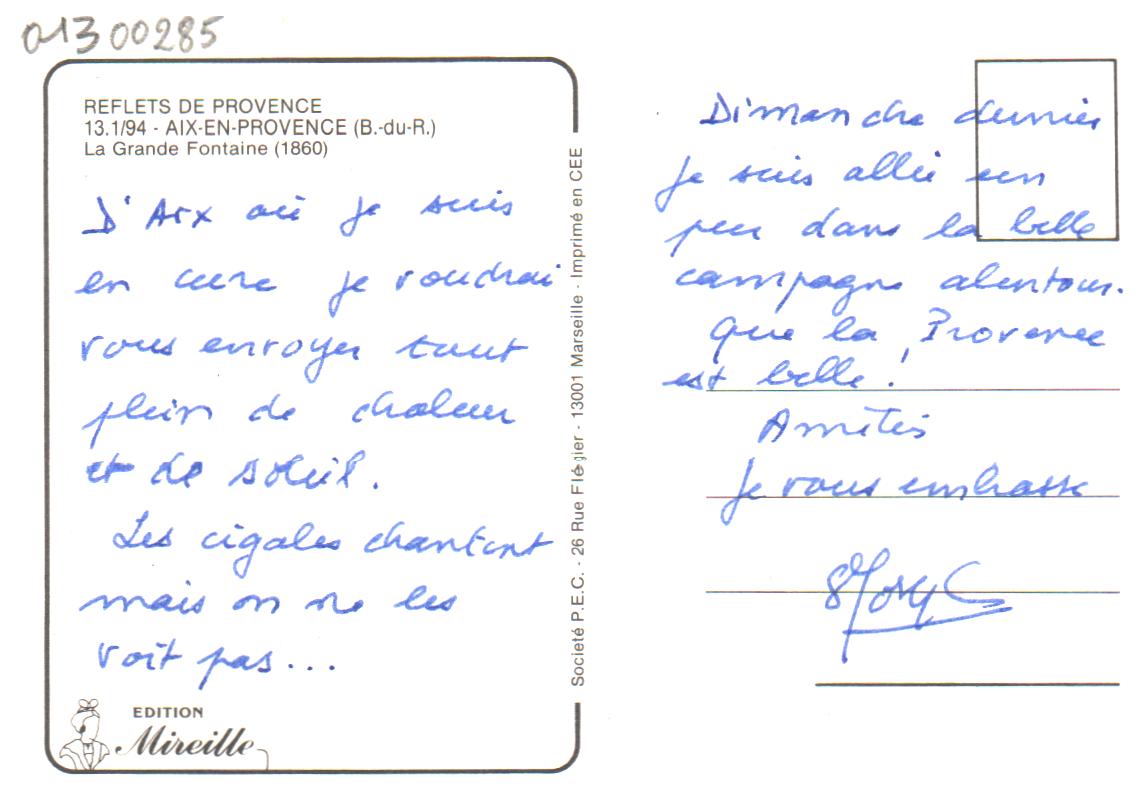 01300285
REFLETS DE PROVENCE
13.1/94 - AIX-EN-PROVENCE (B.-du-R.)
La Grande Fontaine (1860)
D'Aix où je suis
en cure je voudrai
vous envoyer tout
plein de chaleur
et de soleil.
Les cigales chantent
mais on ne les
voit pas...
EDITION
Mireille
Societé P.E.C. - 26 Rue Flégier - 13001 Marseille - Imprimé en CEE
Dimanche dernier
je suis allée un
peu dans la belle
campagne alentour.
Que la Provence
est belle !
Amitiés
Je vous embrasse